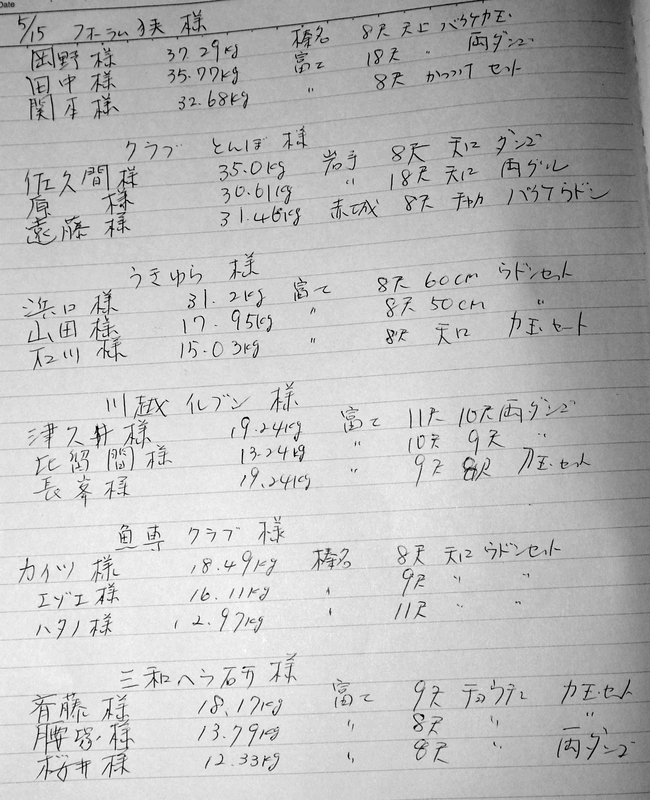 Date
5/15 フォーラム狭 様
岡野様 37.29kg 榛名 8尺 天上 バラケ力玉
田中様 35.77kg 富士 18尺 〃 両ダンゴ
関本様 32.68kg 〃 8尺 かっつけ セット
クラブ とんぼ 様
佐久間様 35.0kg 岩手 8尺 天口 ダンゴ
原 様 30.61kg 〃 18尺 天口 両グル
遠藤様 31.46kg 赤城 8尺 チャカ バラケウドン
うきゆら 様
浜口様 31.2kg 富士 8尺 60cm ウドンセット
山田様 17.95kg 〃 8尺 50cm 〃
石川様 15.03kg 〃 8尺 天口 力玉・セット
川越イレブン 様
津久井様 19.24kg 富士 11尺 10尺 両ダンゴ
比留間様 13.24kg 〃 10尺 9尺 〃
長峯様 19.24kg 〃 9尺 8尺 力玉・セット
魚専クラブ 様
カイツ様 18.49kg 榛名 8尺 天口 ウドンセット
エヅエ様 16.11kg 〃 9尺 〃 〃
ハタノ様 12.97kg 〃 11尺 〃 〃
三和ヘラ研 様
斉藤様 18.17kg 富士 9尺 チョウチン 力玉・セット
腰塚様 13.79kg 〃 8尺 〃 〃
桜井様 12.33kg 〃 8尺 〃 両ダンゴ